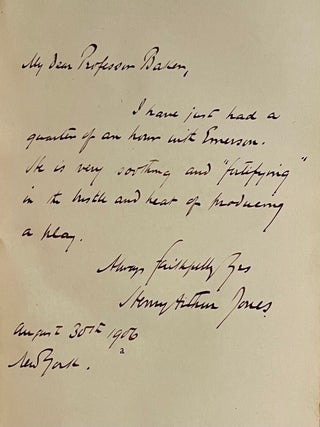 My dear Professor Baker,
I have just had a
quarter of an hour with Emerson.
He is very soothing and "fortifying"
in the bustle and heat of producing
a play.
Always faithfully Yrs
Henry Arthur Jones.
August 30th 1906
New York.